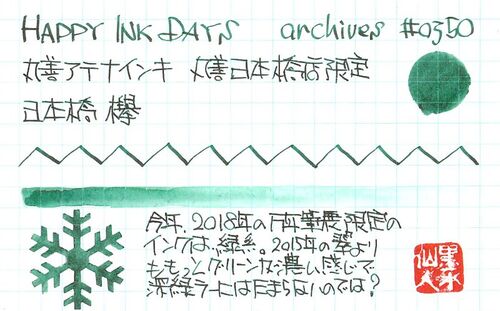 HAPPY INK DAYS archives #0350
丸善アテナインキ 丸善日本橋店限定
日本橋 欅
今年、2018年の万年筆展限定の
インクは、緑系。2015年の翠より
ももっとグリーンが濃い感じで
深緑ラーにはたまらないのでは?
墨水
仙人